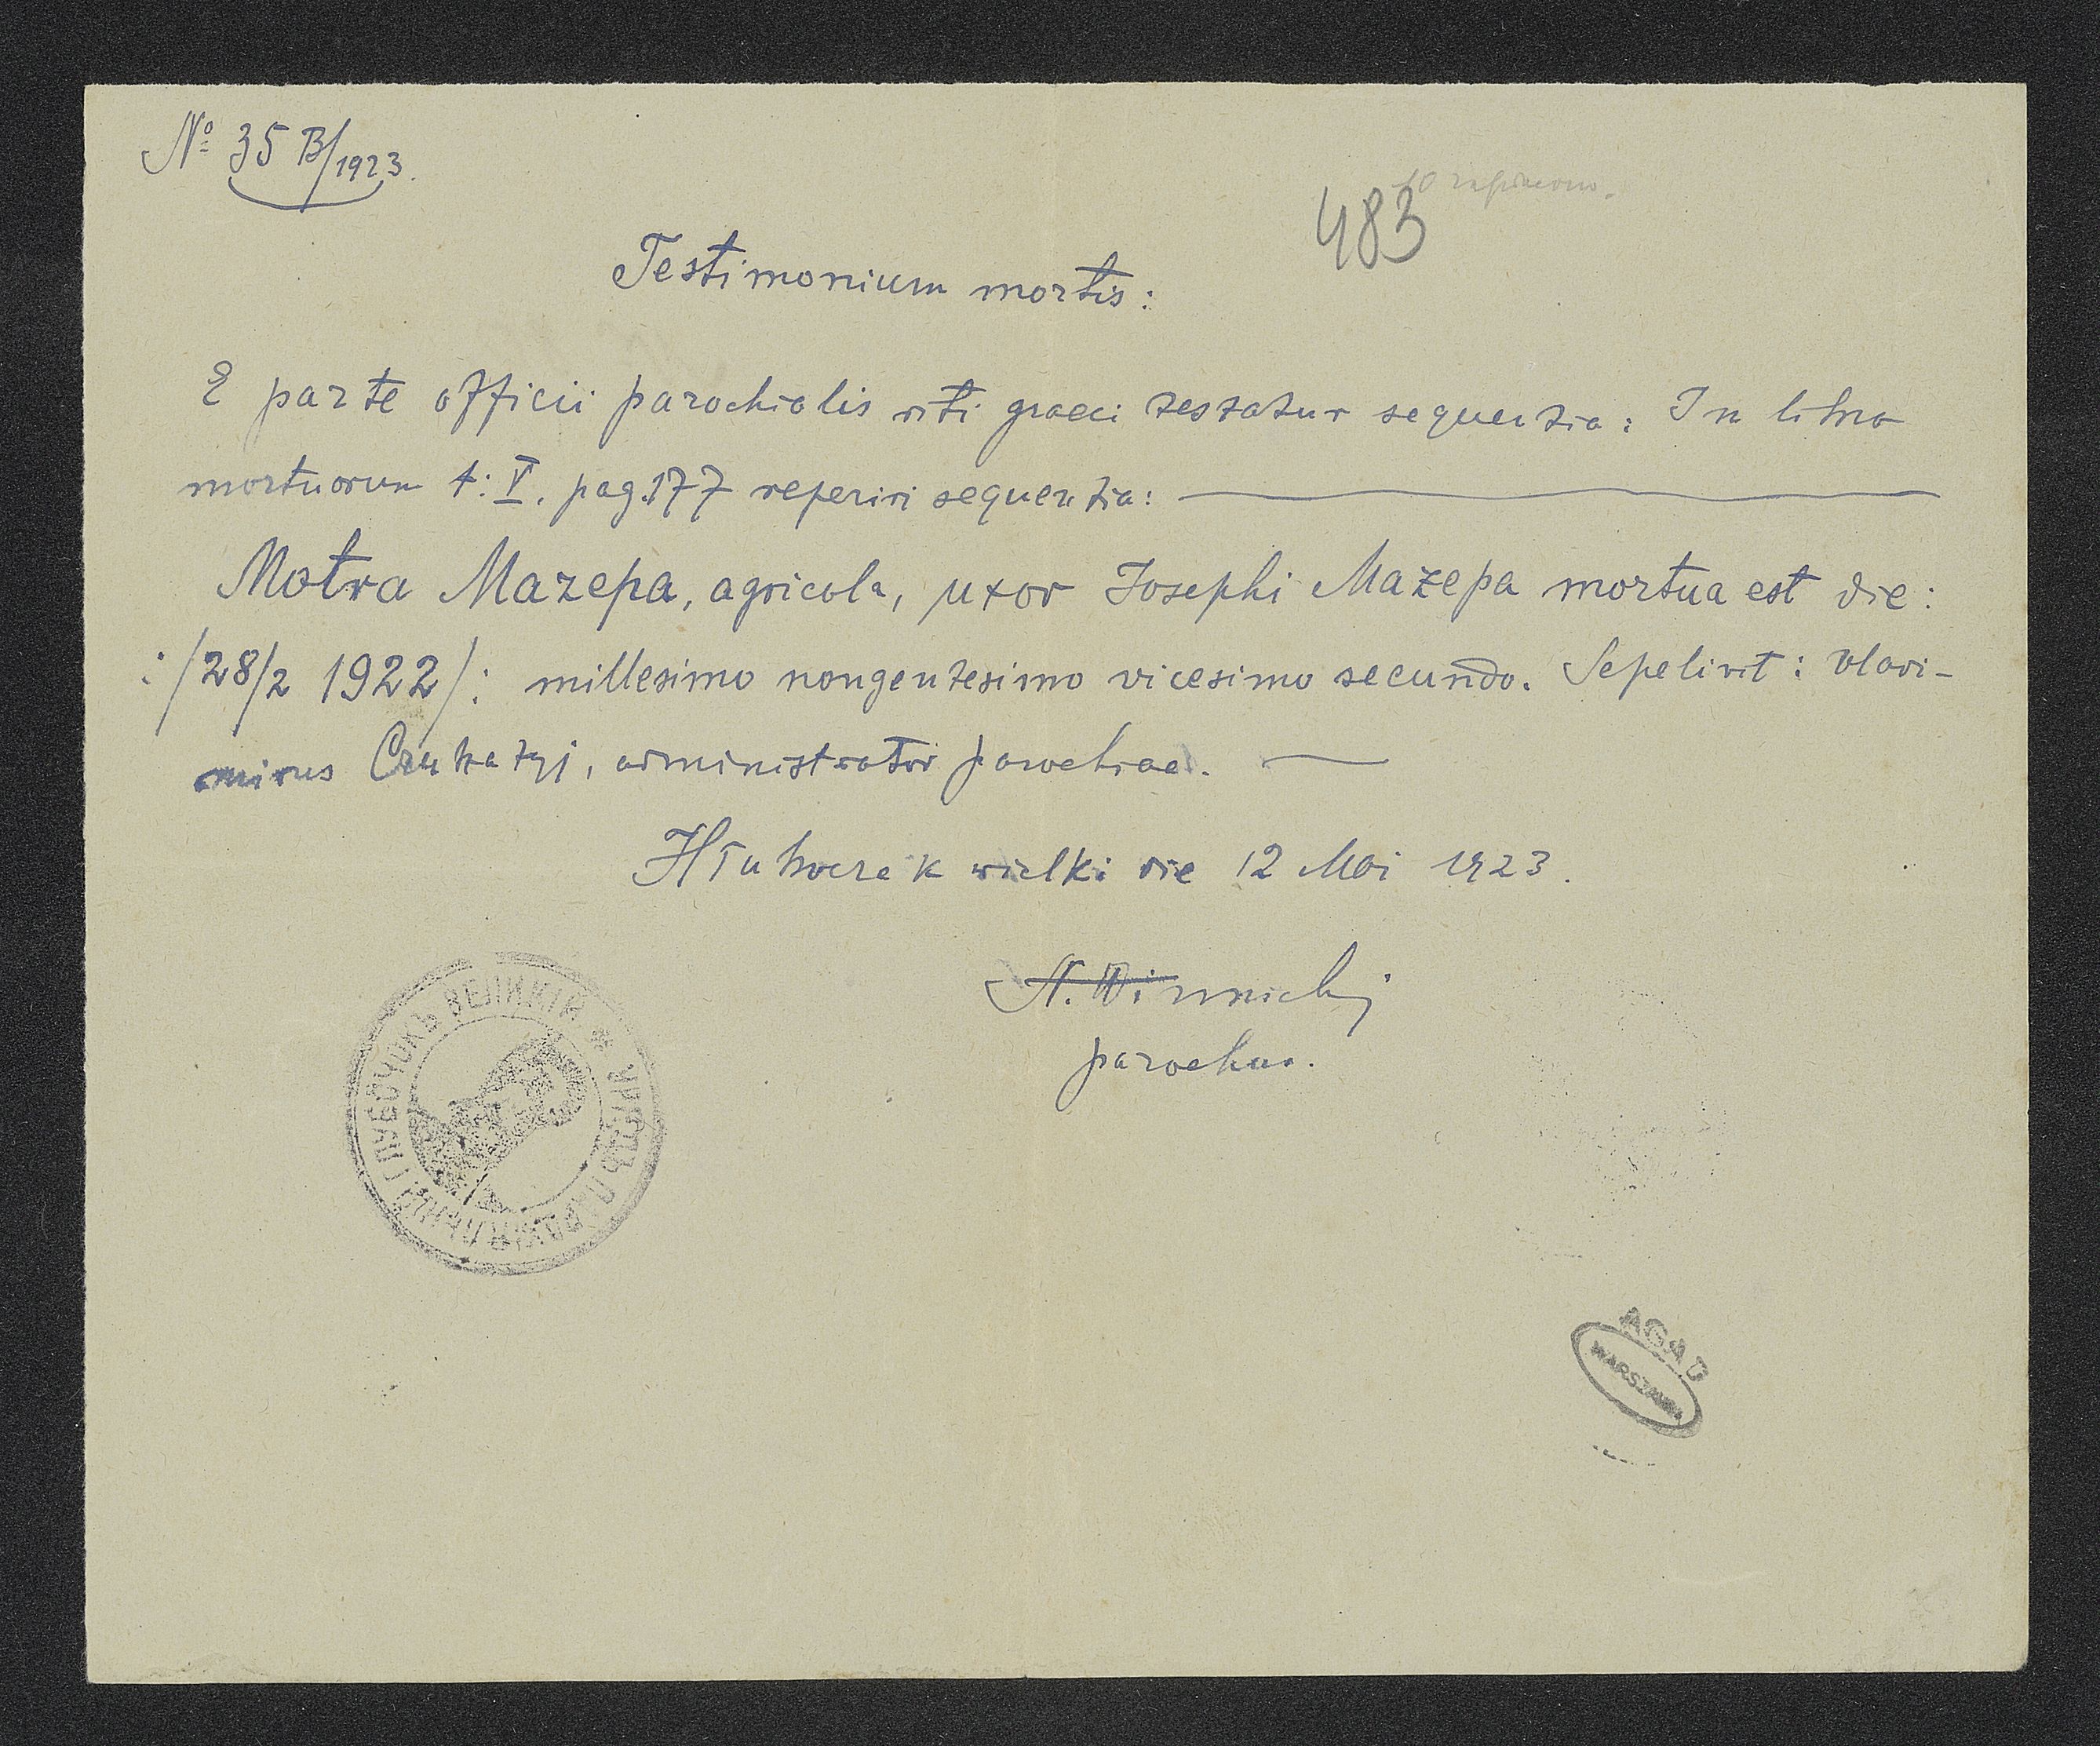 Nº 35 B/1923.
483
Testimonium mortis:
E parte officii parochialis riti graeci testatur sequentia: In libro
mortuorum t: V. pag. 177 reperiri sequentia:
Motra Mazepa, agricola, uxor Josephi Mazepa mortua est die:
:/28/2 1922/: millesimo nongentesimo vicesimo secundo. Sepelivit: Vladi-
mirus administrator parochiae.
Hłuboczek wielki die 12 Mai 1923.
N. Winnickij
parochus.
УРЯДЪ ПАРОХІЯЛЬНЫЙ ГЛУБОЧОКЪ ВЕЛИКІЙ *
AGAD
WARSZAWA